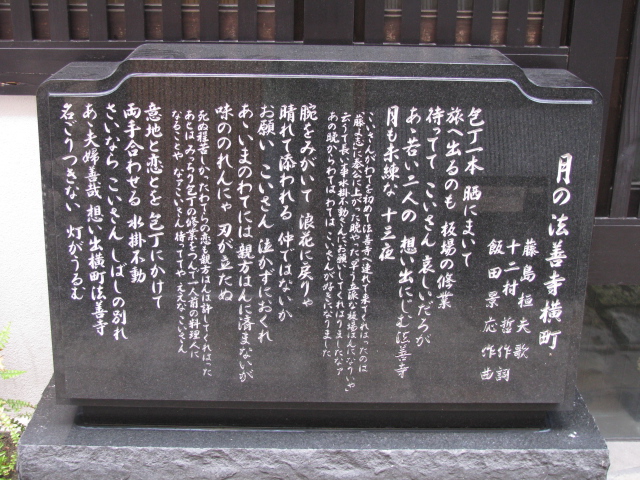 月の法善寺横町
藤島桓夫 歌
十二村哲 作詞
飯田景応 作曲
包丁一本 晒にまいて
旅へ出るのも 板場の修業
待ってて こいさん 哀しいだろが
あゝ若い二人の 想い出にしむ法善寺
月も未練な 十三夜
「こいさんが、わてを初めて法善寺へ連れて来てくれはったのは
「藤よ志」に奉公に上がった晩やった。早う立派な板場はんになりいや」
云うて長い事水掛不動さんにお願いしてくれはりましたなァ
あの晩からわては、わては、こいさんが好きになりました
腕をみがいて 浪花に戻りゃ
晴れて添われる 仲ではないか
お願い こいさん 泣かずにおくれ
あゝいまのわてには 親方はんに済まないが
味ののれんにゃ 刃が立たぬ
死ぬ程苦しかったわてらの恋も親方はんは許してくれはった
あとはみっちり包丁の修業をつんで一人前の料理人に
なることや。なァこいさん、待っててや…ええなァこいさん
意地と恋とを 包丁にかけて
両手合わせる 水掛不動
さいなら こいさん しばしの別れ
あゝ夫婦善哉 想い出横町 法善寺
名ごりつきない 灯がうるむ